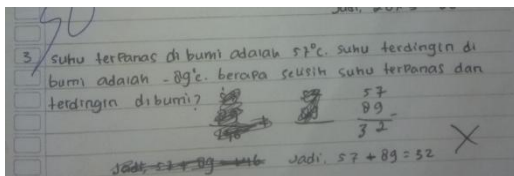 3 suhu terpanas di bumi adalah 57°c. suhu terdingin di
bumi adalah -89°c. berapa selisih suhu terpanas dan
terdingin dibumi?
57
89 -
32
Jadi, 57 + 89 = 146
Jadi, 57 + 89 = 32